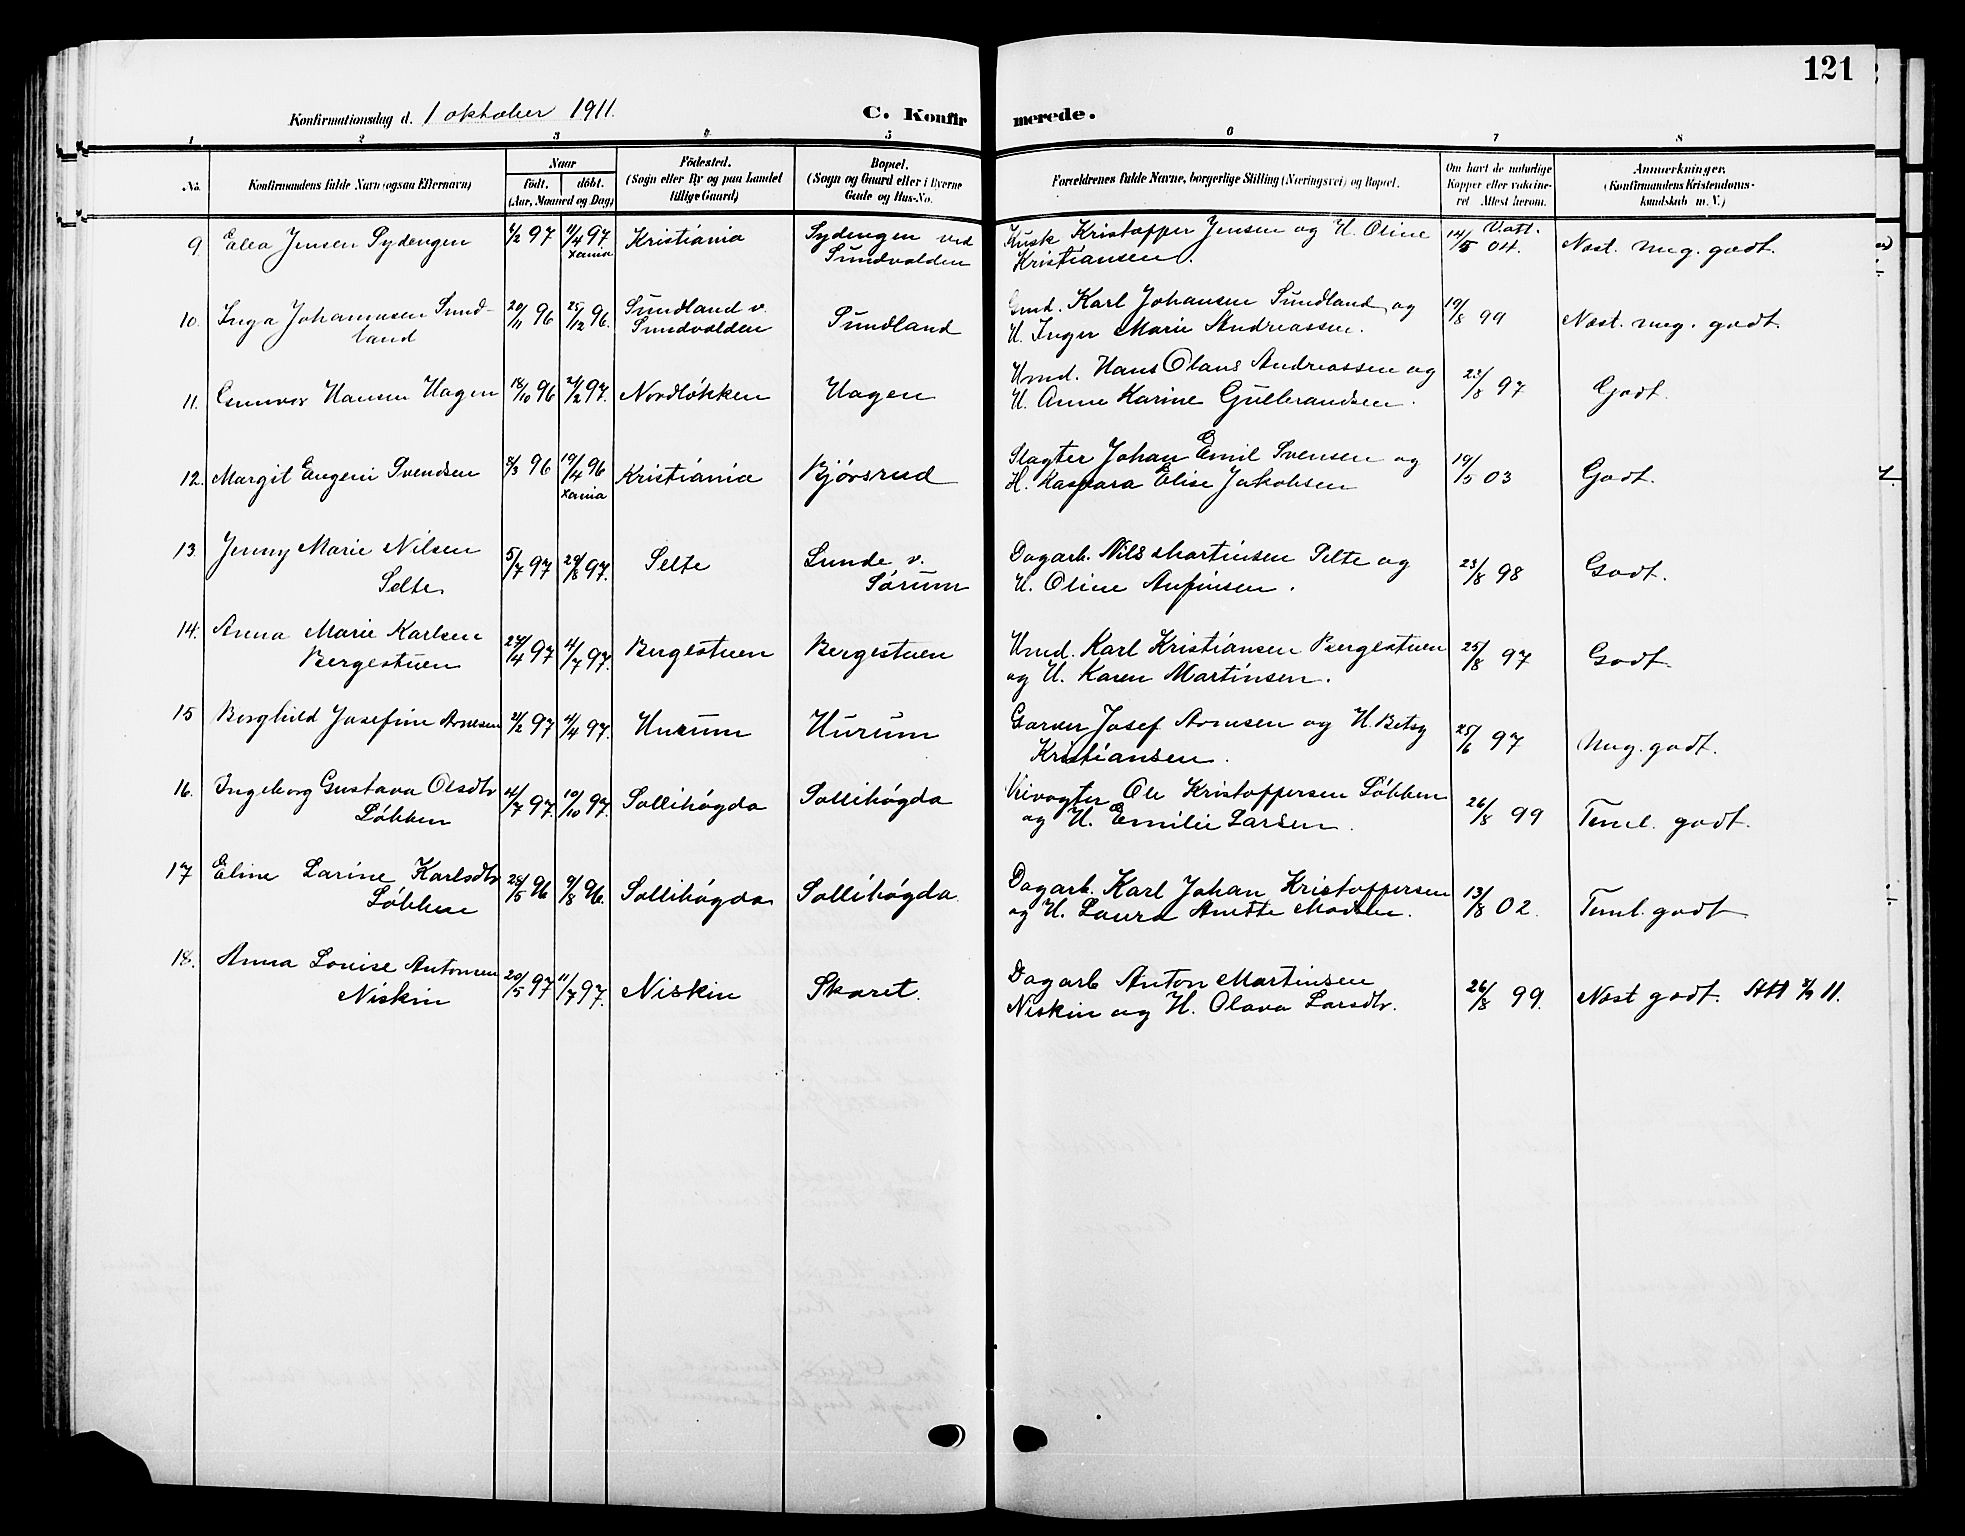 121
Konfirmationsdag d. 1 oktober 1911.
C. Konfirmerede.
1 2 3 4 5 6 7 8
No.
Konfirmandens fulde Navn (ogsaa Efternavn)
Naar
födt, döbt.
(Aar, Maaned og Dag)
Födested.
(Sogn eller By og paa Landet
tillige Gaard)
Bopæl.
(Sogn og Gaard eller i Byerne
Gade og Hus-No.
Forældrenes fulde Navne, borgerlige Stilling (Næringsvei) og Bopæl.
Om havt de naturlige
Kopper eller vakcine-
ret Attest herom.
Anmærkninger.
(Konfirmandens Kristendoms-
kundskab m. V.)
9 Jensen Sydengen 1/2 97 11/4 97 Kristiania Sydengen ved Kusk Kristoffer Jensen og H. Oline 14/5 04. Næst. meg. godt.
Xania Sundvolden Kristiansen.
10. Inga Johannesen Sund- 20/11 96 25/12 96. Sundland v. Sundland Gmd. Karl Johansen Sundland og 19/8 99 Næst. meg. godt.
land Sundvolden H. Inger Marie Andreassen.
11. Gunvor Hansen Hagen 18/10 96 21/2 97. Nordløkken Hagen Hmd. Hans Olaus Andreassen og 23/8 97 Godt.
H. Anne Karine Gulbrandsen.
12. Margit Eugeni Svendsen 8/3 96 19/4 96 Kristiania Bjørsrud Slagter Johan Emil Svensen og 19/5 03 Godt.
Xania H. Kaspara Elise Jakobsen
13. Jenny Marie Nilsen 5/7 97 29/8 97. Selte Lunde v. Dagarb. Nils Martinsen Selte og 23/8 98 Godt.
Selte. Sørum H. Oline Anfinsen.
14. Anna Marie Karlsen 27/4 97 11/7 97. Bergestuen Bergestuen Hmd. Karl Kristiansen Bergestuen 25/8 97 Godt.
Bergestuen og H. Karen Martinsen.
15 Borghild Josefine Arnesen 21/2 97 11/4 97. Hurum Hurum Garver Josef Arnesen og H. Betsy 25/6 97 Meg. godt.
Kristiansen.
16. Ingeborg Gustava Olsdtr 14/7 97. 10/10 97. Sollihøgda Sollihøgda Veivogter Ole Kristoffersen Løbben 26/8 99 Teml. godt.
Løbben og H. Emilie Larsen.
17 Eline Larine Karlsdtr 28/5 96 9/8 96. Sollihøgda Sollihøgda. Dagarb. Karl Johan Kristoffersen 13/8 02. Teml. godt
Løbben og H. Laura Anette Madsen.
18. Anna Louise Antonsen 20/5 97 11/7 97. Niskin Skaret. Dagarb Anton Martinsen 26/8 99. Næst godt. Att 11.
Niskin Niskin og H. Olava Larsdtr.